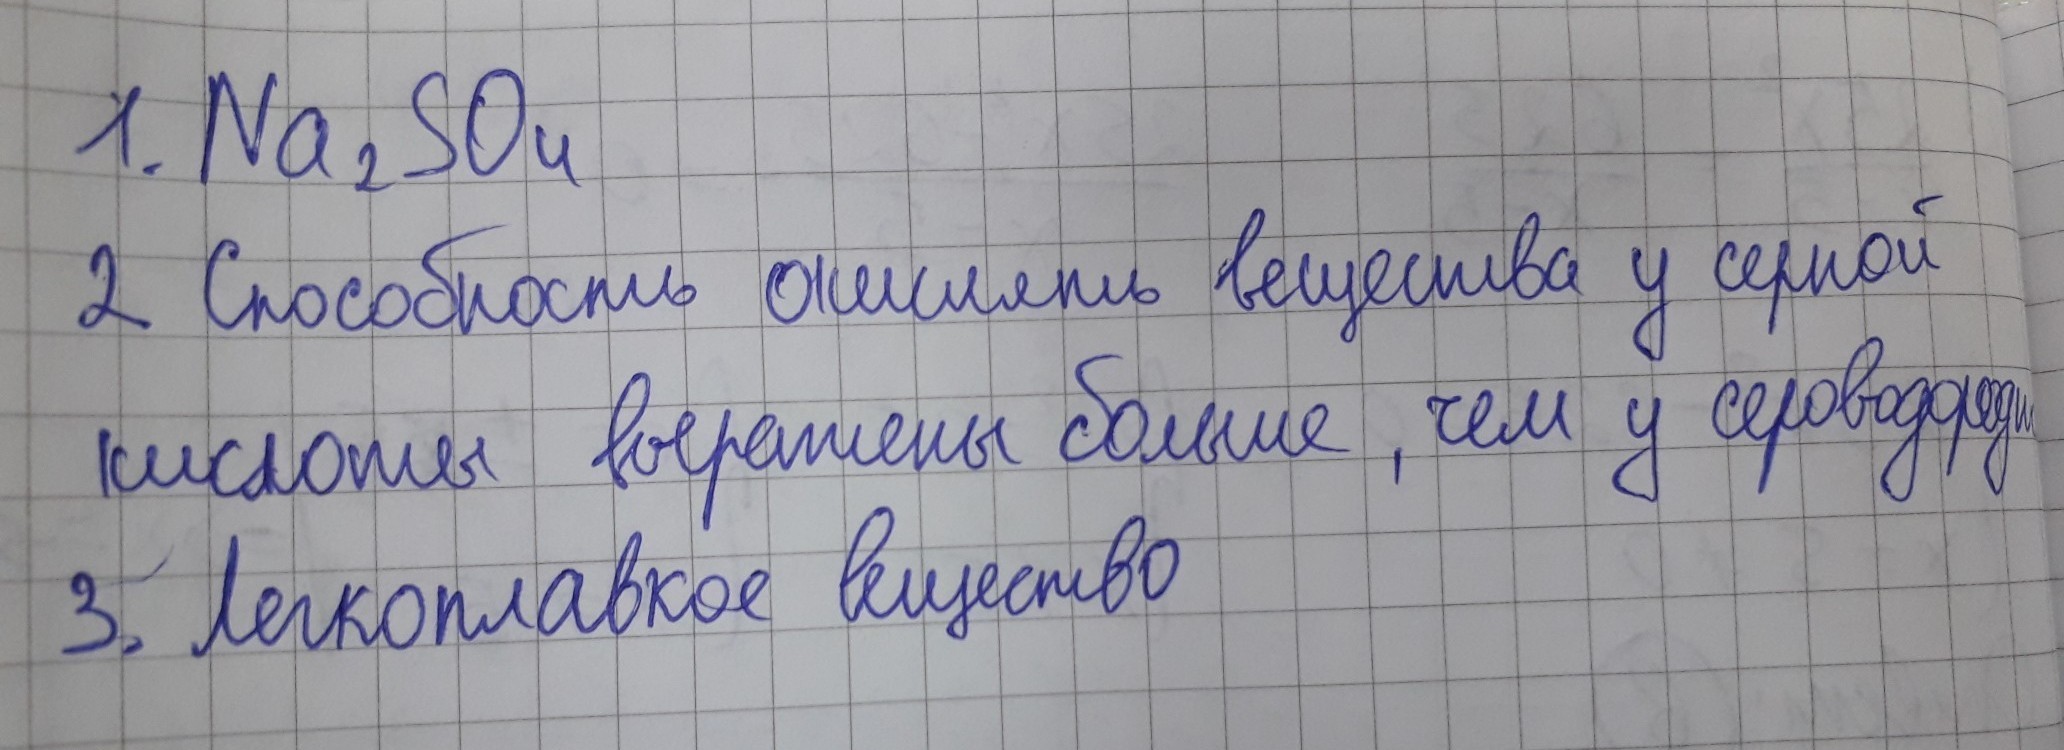 1. Na₂SO₄
2 Способность окислять вещества у серной
кислоты выражены больше, чем у
3. Легкоплавкое вещество